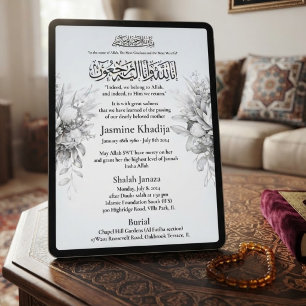 بسم الله الرحمن الرحيم
"In the name of Allah, The Most Gracious and The Most Merciful"
إنا لله وإنا إليه راجعون
"Indeed, we belong to Allah,
and indeed, to Him we return."
It is with great sadness
that we learned of the passing
of our dearly beloved mother
Jasmine Khadija
January 18th 1960 - July 8th 2024
May Allah SWT have mercy on her
and grant her the highest level of Jannah
Insha Allah
Shalah Janaza
Monday, July 8, 2024
after Duuhr salah 1:30 pm
Islamic Foundation South (IFS)
300 Highridge Road, Villa Park, IL
Burial
Chapel Hill Gardens (Al Fatiha section)
17W201 Roosevelt Road, Oakbrook Terrace, IL